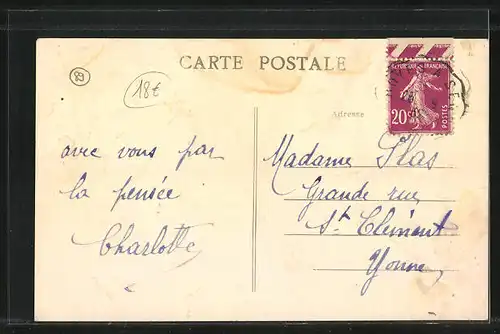 CARTE POSTALE
18€
Adresse
REPUBLIQUE FRANÇAISE
20c
POSTES
avec vous par
la pensée
Charlotte
Madame Plas
Grande rue
St Clément
Yonne